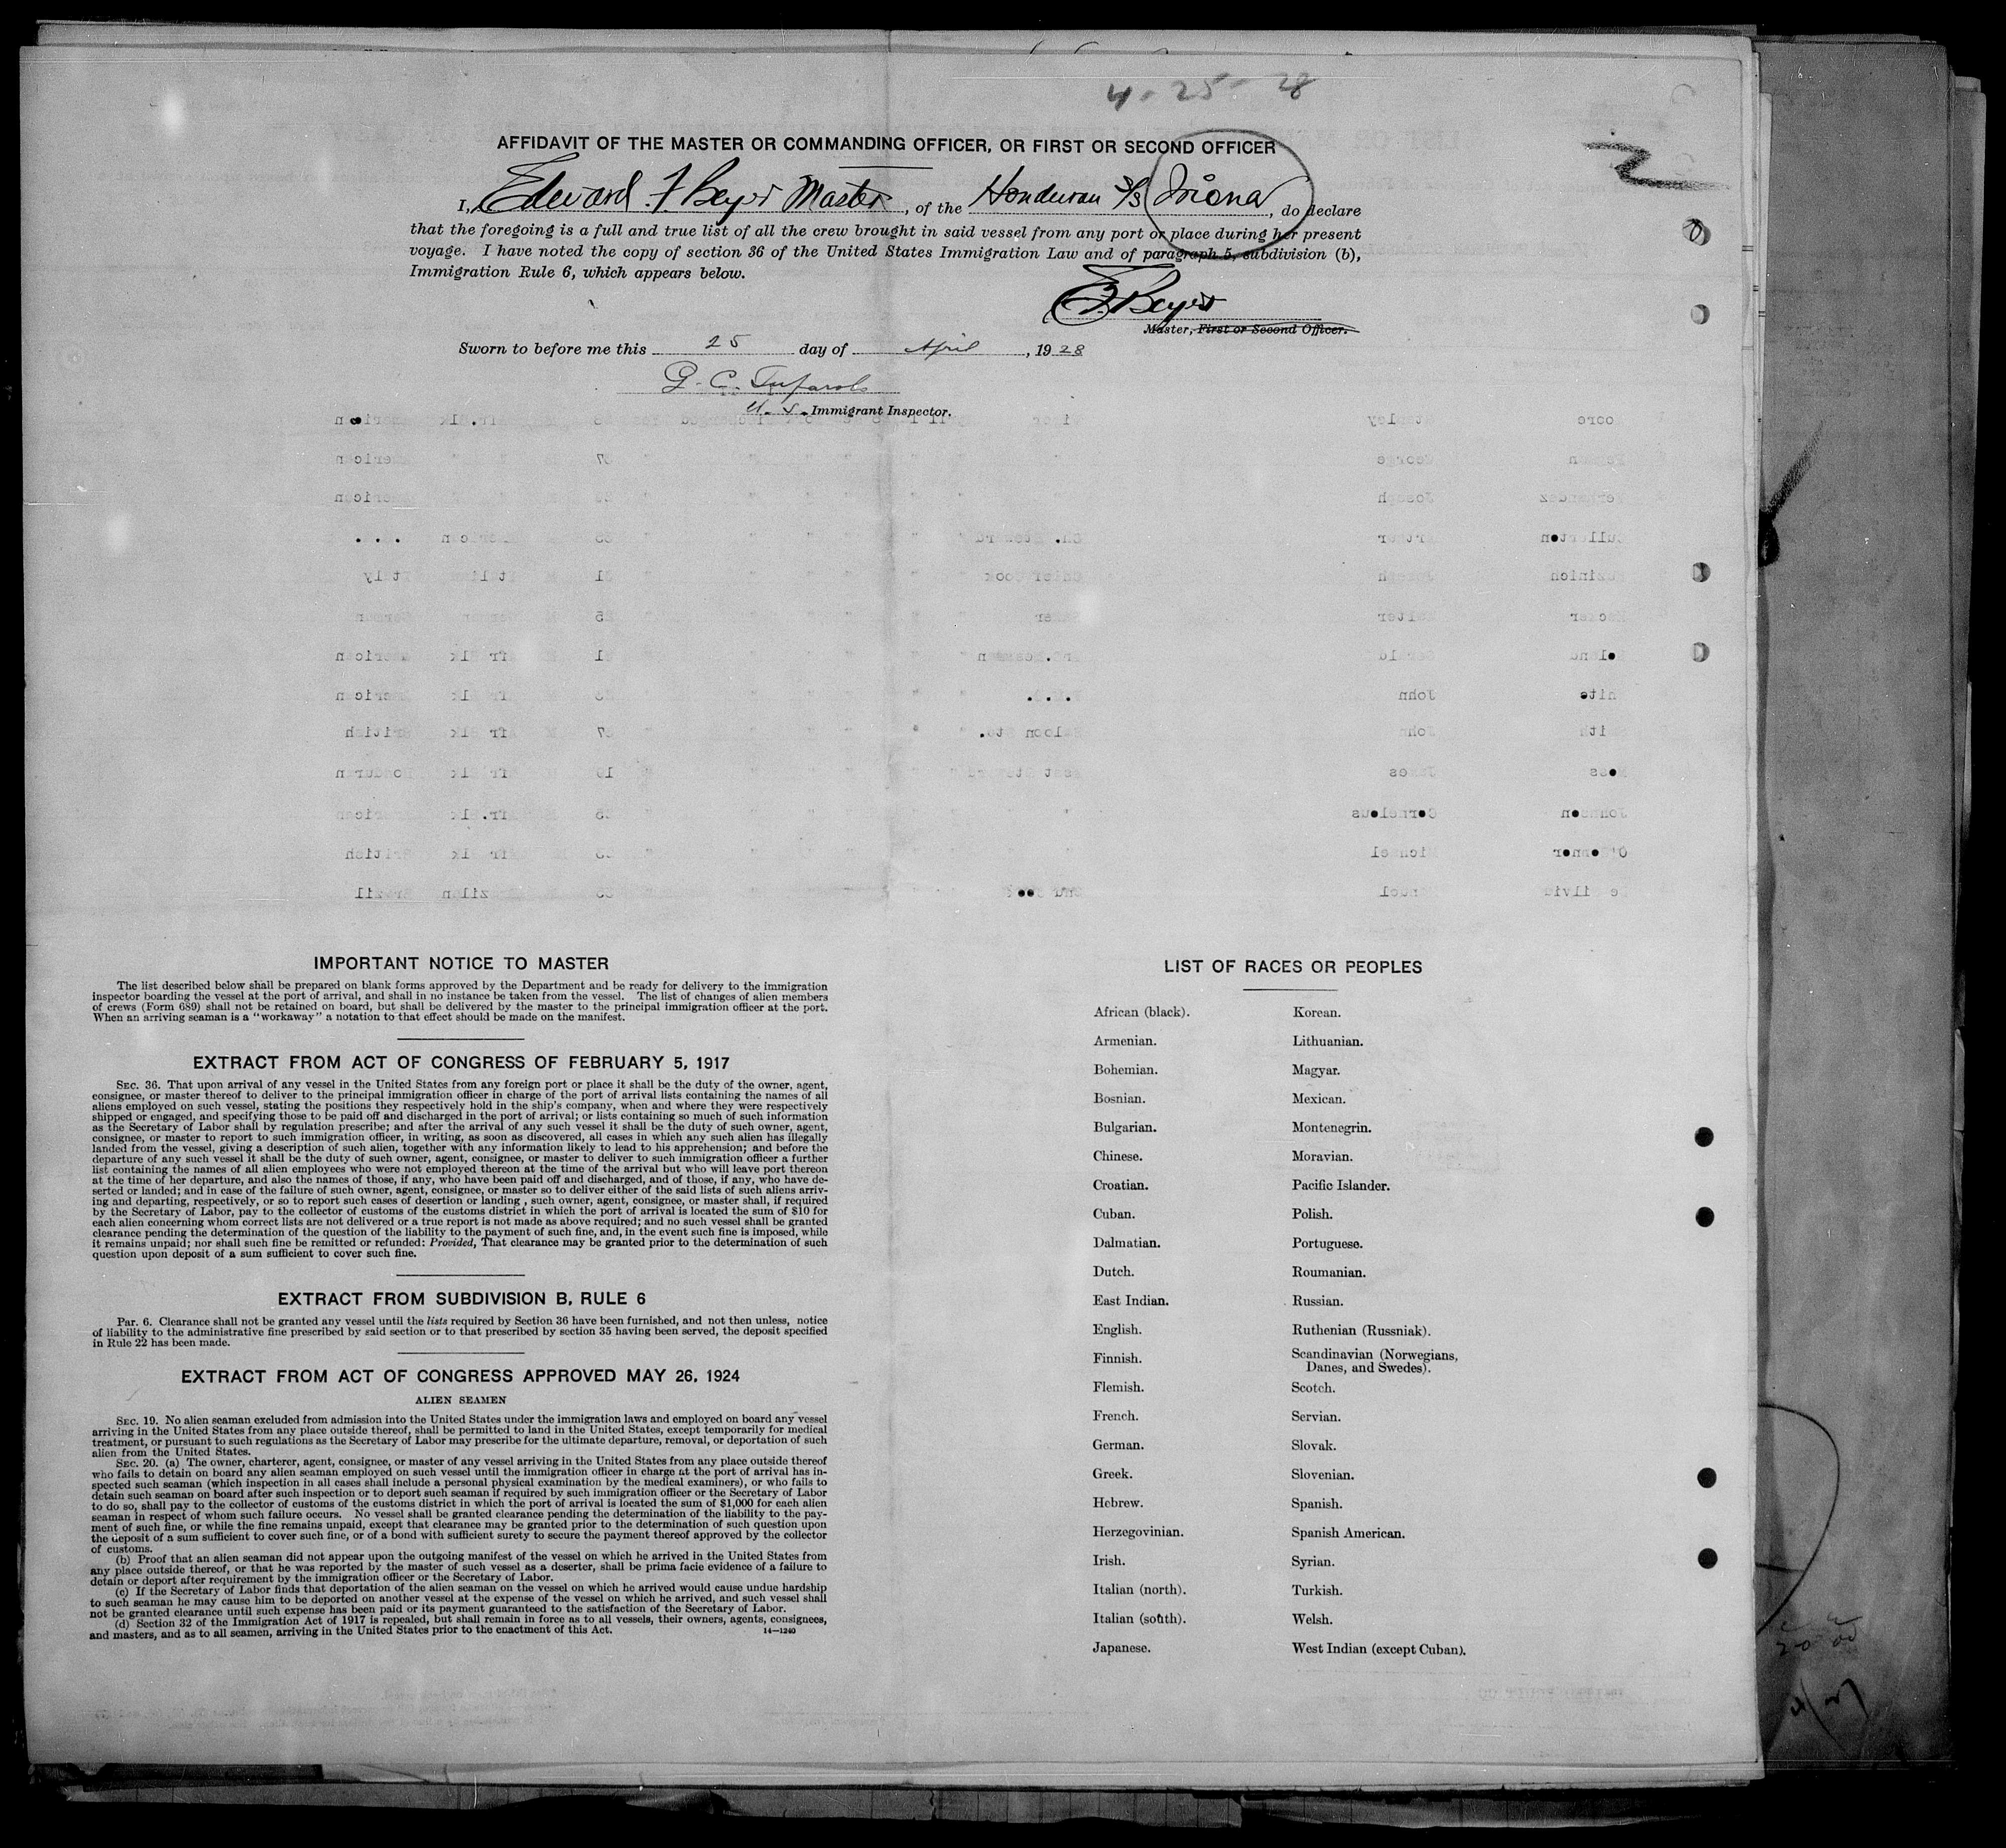 4-25-28
AFFIDAVIT OF THE MASTER OR COMMANDING OFFICER, OR FIRST OR SECOND OFFICER
I, Edward F Beyer Master, of the Honduran S/S Iriona, do declare
that the foregoing is a full and true list of all the crew brought in said vessel from any port or place during her present
voyage. I have noted the copy of section 36 of the United States Immigration Law and of paragraph 5, subdivision (b),
Immigration Rule 6, which appears below.
E. F. Beyer
Master, First or Second Officer.
Sworn to before me this 25 day of April, 1928
G. C.
U. S. Immigrant Inspector.
IMPORTANT NOTICE TO MASTER
The list described below shall be prepared on blank forms approved by the Department and be ready for delivery to the immigration
inspector boarding the vessel at the port of arrival, and shall in no instance be taken from the vessel. The list of changes of alien members
of crews (Form 689) shall not be retained on board, but shall be delivered by the master to the principal immigration officer at the port.
When an arriving seaman is a "workaway" a notation to that effect should be made on the manifest.
EXTRACT FROM ACT OF CONGRESS OF FEBRUARY 5, 1917
SEC. 36. That upon arrival of any vessel in the United States from any foreign port or place it shall be the duty of the owner, agent,
consignee, or master thereof to deliver to the principal immigration officer in charge of the port of arrival lists containing the names of all
aliens employed on such vessel, stating the positions they respectively hold in the ship's company, when and where they were respectively
shipped or engaged, and specifying those to be paid off and discharged in the port of arrival; or lists containing so much of such information
as the Secretary of Labor shall by regulation prescribe; and after the arrival of any such vessel it shall be the duty of such owner, agent,
consignee, or master to report to such immigration officer, in writing, as soon as discovered, all cases in which any such alien has illegally
landed from the vessel, giving a description of such alien, together with any information likely to lead to his apprehension; and before the
departure of any such vessel it shall be the duty of such owner, agent, consignee, or master to deliver to such immigration officer a further
list containing the names of all alien employees who were not employed thereon at the time of the arrival but who will leave port thereon
at the time of her departure, and also the names of those, if any, who have been paid off and discharged, and of those, if any, who have de-
serted or landed; and in case of the failure of such owner, agent, consignee, or master so to deliver either of the said lists of such aliens arriv-
ing and departing, respectively, or so to report such cases of desertion or landing , such owner, agent, consignee, or master shall, if required
by the Secretary of Labor, pay to the collector of customs of the customs district in which the port of arrival is located the sum of $10 for
each alien concerning whom correct lists are not delivered or a true report is not made as above required; and no such vessel shall be granted
clearance pending the determination of the question of the liability to the payment of such fine, and, in the event such fine is imposed, while
it remains unpaid; nor shall such fine be remitted or refunded: Provided, That clearance may be granted prior to the determination of such
question upon deposit of a sum sufficient to cover such fine.
EXTRACT FROM SUBDIVISION B, RULE 6
Par. 6. Clearance shall not be granted any vessel until the lists required by Section 36 have been furnished, and not then unless, notice
of liability to the administrative fine prescribed by said section or to that prescribed by section 35 having been served, the deposit specified
in Rule 22 has been made.
EXTRACT FROM ACT OF CONGRESS APPROVED MAY 26, 1924
ALIEN SEAMEN
SEC. 19. No alien seaman excluded from admission into the United States under the immigration laws and employed on board any vessel
arriving in the United States from any place outside thereof, shall be permitted to land in the United States, except temporarily for medical
treatment, or pursuant to such regulations as the Secretary of Labor may prescribe for the ultimate departure, removal, or deportation of such
alien from the United States.
SEC. 20. (a) The owner, charterer, agent, consignee, or master of any vessel arriving in the United States from any place outside thereof
who fails to detain on board any alien seaman employed on such vessel until the immigration officer in charge at the port of arrival has in-
spected such seaman (which inspection in all cases shall include a personal physical examination by the medical examiners), or who fails to
detain such seaman on board after such inspection or to deport such seaman if required by such immigration officer or the Secretary of Labor
to do so, shall pay to the collector of customs of the customs district in which the port of arrival is located the sum of $1,000 for each alien
seaman in respect of whom such failure occurs. No vessel shall be granted clearance pending the determination of the liability to the pay-
ment of such fine, or while the fine remains unpaid, except that clearance may be granted prior to the determination of such question upon
the deposit of a sum sufficient to cover such fine, or of a bond with sufficient surety to secure the payment thereof approved by the collector
of customs.
(b) Proof that an alien seaman did not appear upon the outgoing manifest of the vessel on which he arrived in the United States from
any place outside thereof, or that he was reported by the master of such vessel as a deserter, shall be prima facie evidence of a failure to
detain or deport after requirement by the immigration officer or the Secretary of Labor.
(c) If the Secretary of Labor finds that deportation of the alien seaman on the vessel on which he arrived would cause undue hardship
to such seaman he may cause him to be deported on another vessel at the expense of the vessel on which he arrived, and such vessel shall
not be granted clearance until such expense has been paid or its payment guaranteed to the satisfaction of the Secretary of Labor.
(d) Section 32 of the Immigration Act of 1917 is repealed, but shall remain in force as to all vessels, their owners, agents, consignees,
and masters, and as to all seamen, arriving in the United States prior to the enactment of this Act. 14—1240
LIST OF RACES OR PEOPLES
African (black). Korean.
Armenian. Lithuanian.
Bohemian. Magyar.
Bosnian. Mexican.
Bulgarian. Montenegrin.
Chinese. Moravian.
Croatian. Pacific Islander.
Cuban. Polish.
Dalmatian. Portuguese.
Dutch. Roumanian.
East Indian. Russian.
English. Ruthenian (Russniak).
Finnish. Scandinavian (Norwegians,
Danes, and Swedes).
Flemish. Scotch.
French. Servian.
German. Slovak.
Greek. Slovenian.
Hebrew. Spanish.
Herzegovinian. Spanish American.
Irish. Syrian.
Italian (north). Turkish.
Italian (south). Welsh.
Japanese. West Indian (except Cuban).